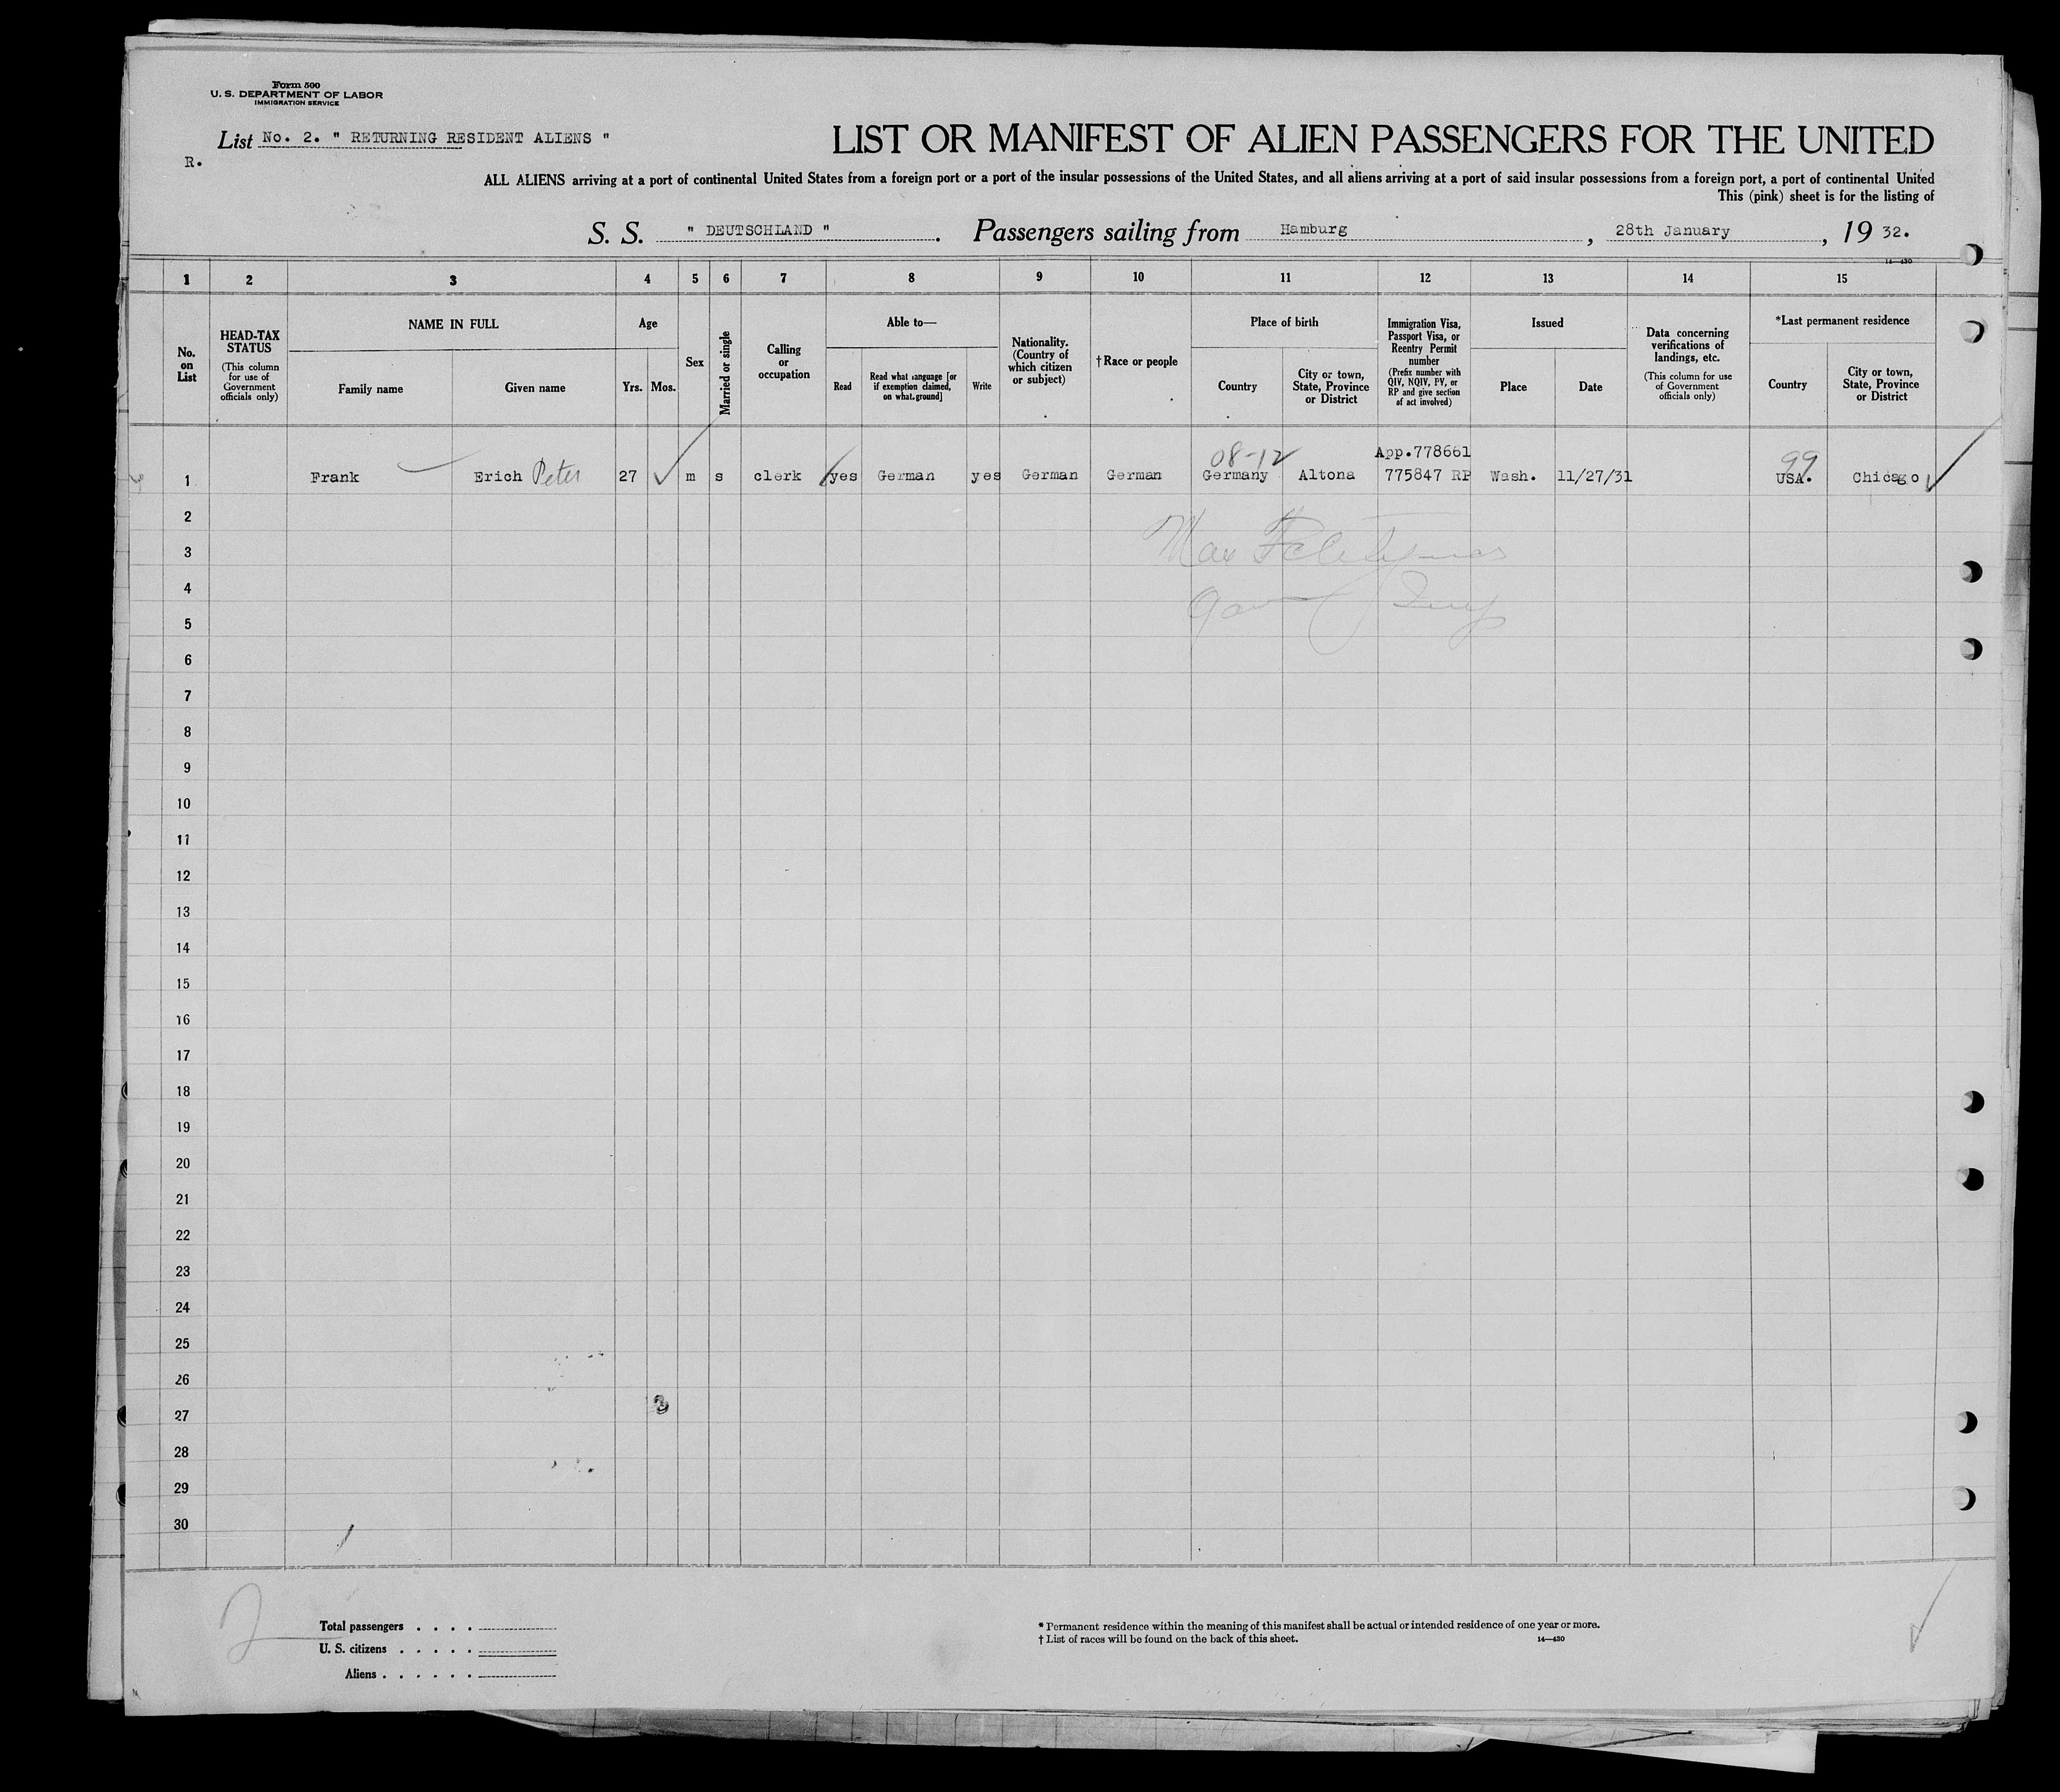 Form 500
U. S. DEPARTMENT OF LABOR
IMMIGRATION SERVICE
List No. 2. " RETURNING RESIDENT ALIENS "
R.
LIST OR MANIFEST OF ALIEN PASSENGERS FOR THE UNITED
ALL ALIENS arriving at a port of continental United States from a foreign port or a port of the insular possessions of the United States, and all aliens arriving at a port of said insular possessions from a foreign port, a port of continental United
This (pink) sheet is for the listing of
S. S. " DEUTSCHLAND ". Passengers sailing from Hamburg, 28th January, 19 32.
14—430
1 2 3 4 5 6 7 8 9 10 11 12 13 14 15
No. on List
HEAD-TAX STATUS
(This column for use of Government officials only)
NAME IN FULL
Family name
Given name
Age
Yrs.
Mos.
Sex
Married or single
Calling or occupation
Able to—
Read
Read what language [or if exemption claimed, on what ground]
Write
Nationality. (Country of which citizen or subject)
†Race or people
Place of birth
Country
City or town, State, Province or District
Immigration Visa, Passport Visa, or Reentry Permit number
(Prefix number with QIV, NQIV, PV, or RP and give section of act involved)
Issued
Place
Date
Data concerning verifications of landings, etc.
(This column for use of Government officials only)
*Last permanent residence
Country
City or town, State, Province or District
08-12 App.778661 99
1 Frank Erich Peter 27 m s clerk yes German yes German German Germany Altona 775847 RP Wash. 11/27/31 USA. Chicago
2
3 Max
4
5
6
7
8
9
10
11
12
13
14
15
16
17
18
19
20
21
22
23
24
25
26
27
28
29
30
2
Total passengers . . . .
U. S. citizens . . . . .
Aliens . . . . . .
* Permanent residence within the meaning of this manifest shall be actual or intended residence of one year or more.
† List of races will be found on the back of this sheet. 14—430